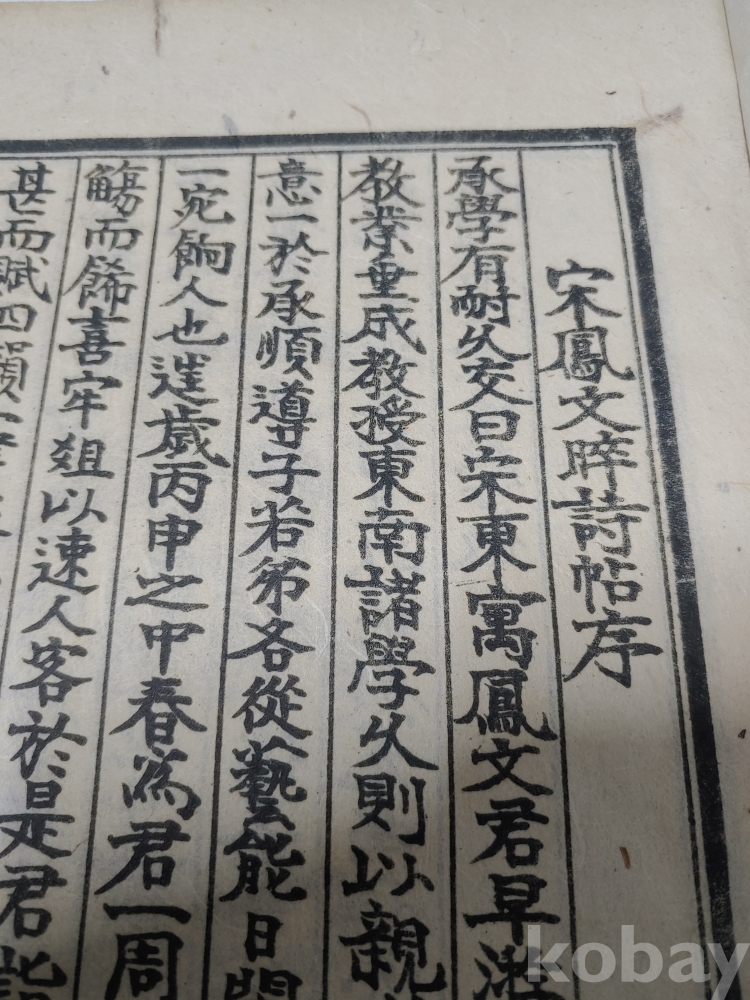 宋鳳文晬詩帖序
承學有耐久交曰宋東寓鳳文君早
教業重成教授東南諸學久則以親
意一於承順導子若弟各從藝能日
一宛餉人也𨓏歲丙申之中春為君一周
觴而餙喜牢俎以速人客於是君
甚而賦四韻
kobay